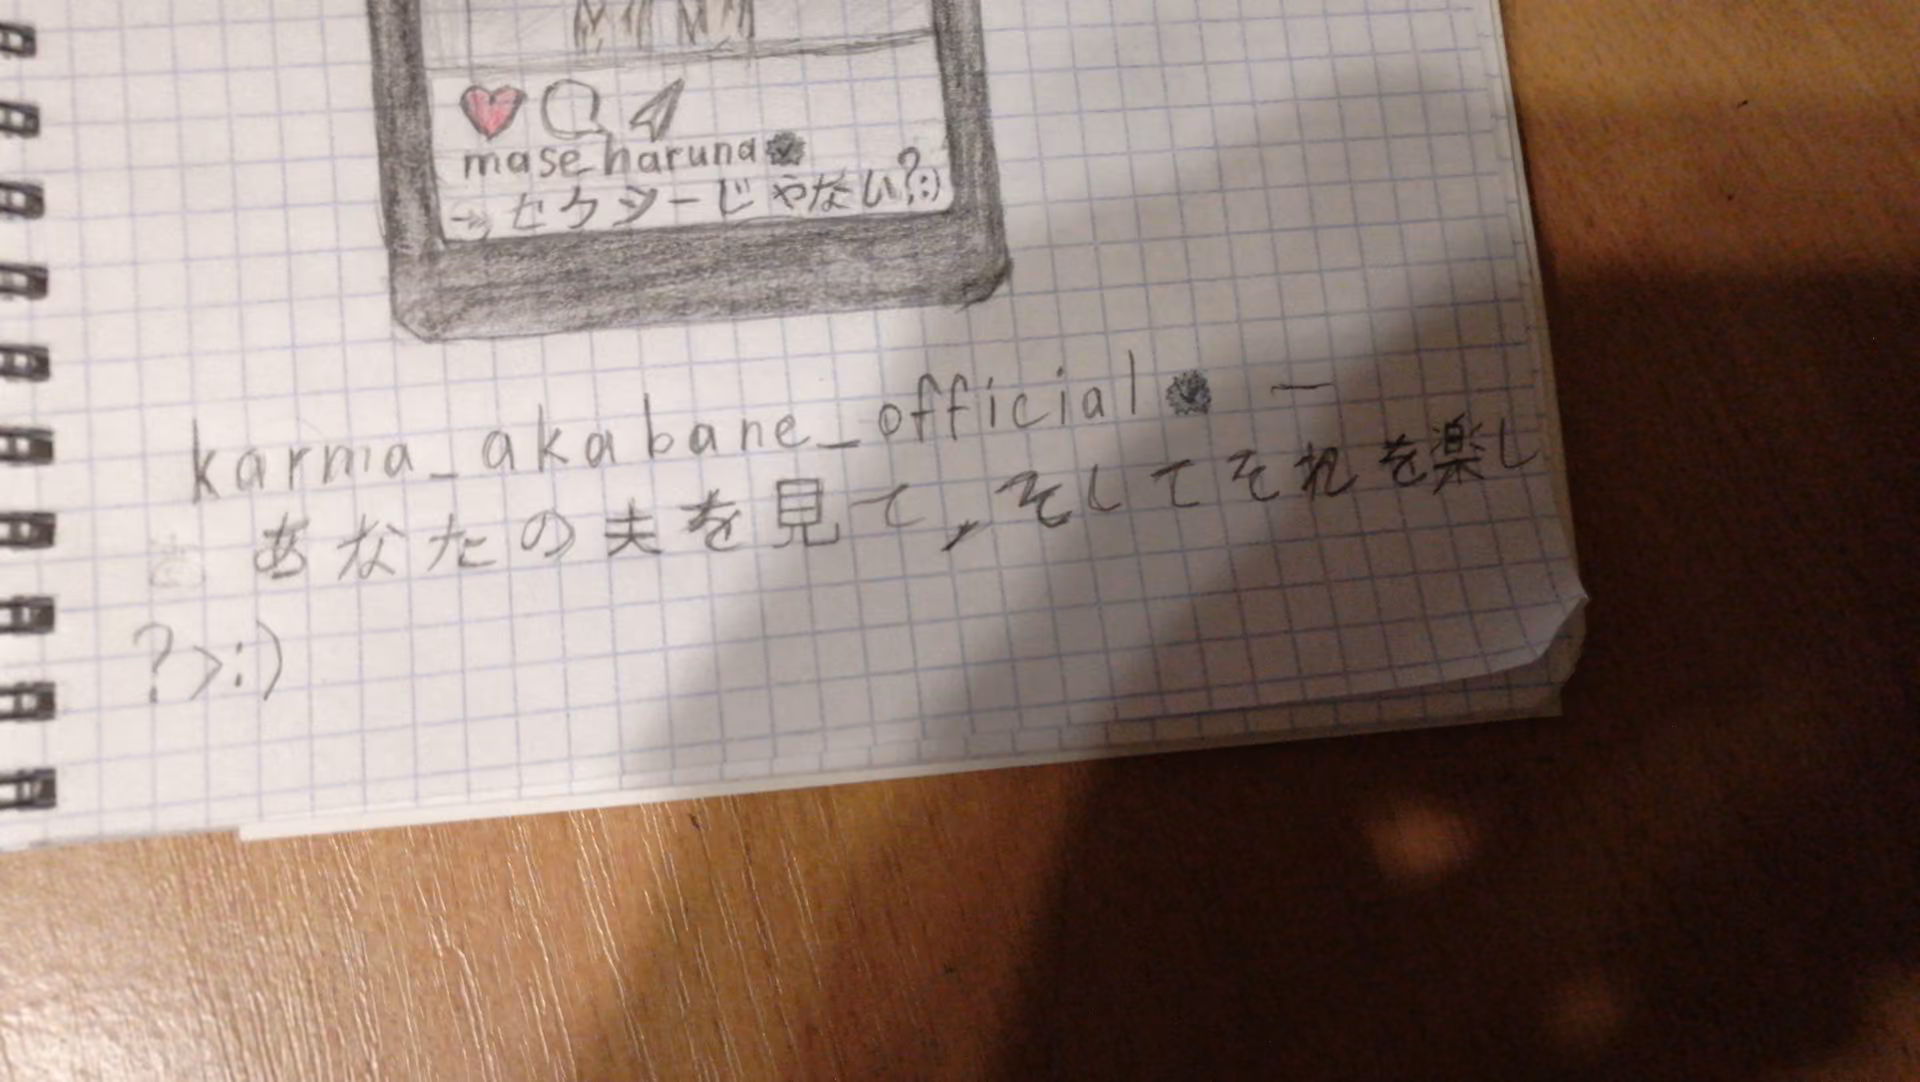 mase_haruna
→ セクシーじゃない?:)
karma_akabane_official —
あなたの夫を見て, そしてそれを楽し
?>:)